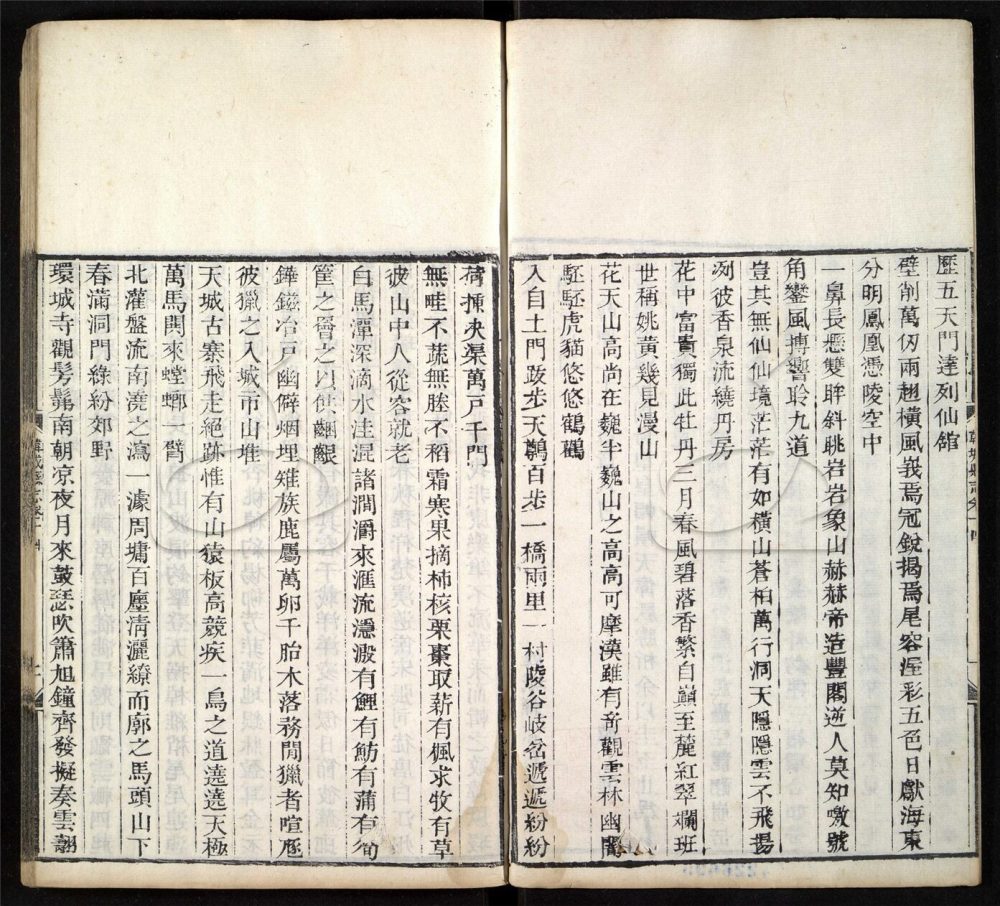 歷五天門達列仙舘
壁削萬仞兩趐橫風峩焉冠銳揭焉尾容渥彩五色日獻海東
分明鳳凰憑陵空中
一鼻長懸雙眸斜眺岩岩象山赫赫帝造豐閣逆人莫知噭號
角鑾風搏響聆九道
豈其無仙仙境茫茫有如橫山蒼柏萬行洞天隱隱雲不飛揚
冽彼香泉流繞丹房
花中富貴獨此牡丹三月春風碧落香繁自巔至麓紅翠斕班
世稱姚黃幾見漫山
花天山高尚在巍半巍山之高高可摩漢雖有奇觀雲林幽闇
駓駓虎貓悠悠鶴鸛
入自土門跋步天鷯百步一橋兩里一村陵谷岐岔遞遞紛紛
荷揷決渠萬戸千門
無畦不蔬無塍不稻霜寒果摘柿核栗棗取薪有楓求牧有草
彼山中人從容就老
白馬潭深滴水洼混諸澗灂來滙流濦溵有鯉有魴有蒲有筍
筐之罾之以供
鏵鎡冶戸幽僻烟埋雉族鹿屬萬卵千胎木落務閒獵者喧豗
彼獵之入城市山堆
天城古寨飛走絕跡惟有山猿板高競疾一鳥之道遶遶天極
萬馬閧來螳螂一臂
北灌盤流南澆之瀉一濠周墉百鏖清灑繚而廓之馬頭山下
春滿洞門綠紛郊野
環城寺觀髣髴南朝凉夜月來鼓瑟吹簫旭鐘齊發擬奏雲翺